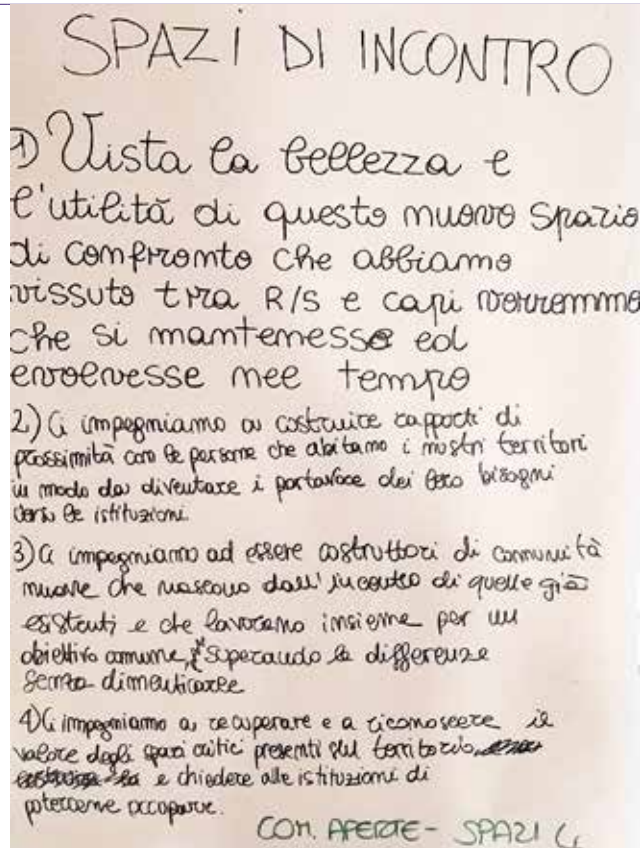 SPAZI DI INCONTRO
1) Vista la bellezza e
l'utilità di questo nuovo spazio
di confronto che abbiamo
vissuto tra R/S e capi vorremmo
che si mantenesse ed
evolvesse nel tempo
2) Ci impegniamo a costruire rapporti di
prossimità con le persone che abitano i nostri territori
in modo da diventare i portavoce dei loro bisogni
verso le istituzioni.
3) Ci impegniamo ad essere costruttori di comunità
nuove che nascono dall'incontro di quelle già
esistenti e che lavorano insieme per un
obiettivo comune, superando le differenze
senza dimenticarle
4) Ci impegniamo a recuperare e a riconoscere il
valore degli spazi critici presenti sul territorio
e chiedere alle istituzioni di
potercene occupare.
COM. APERTE - SPAZI 4